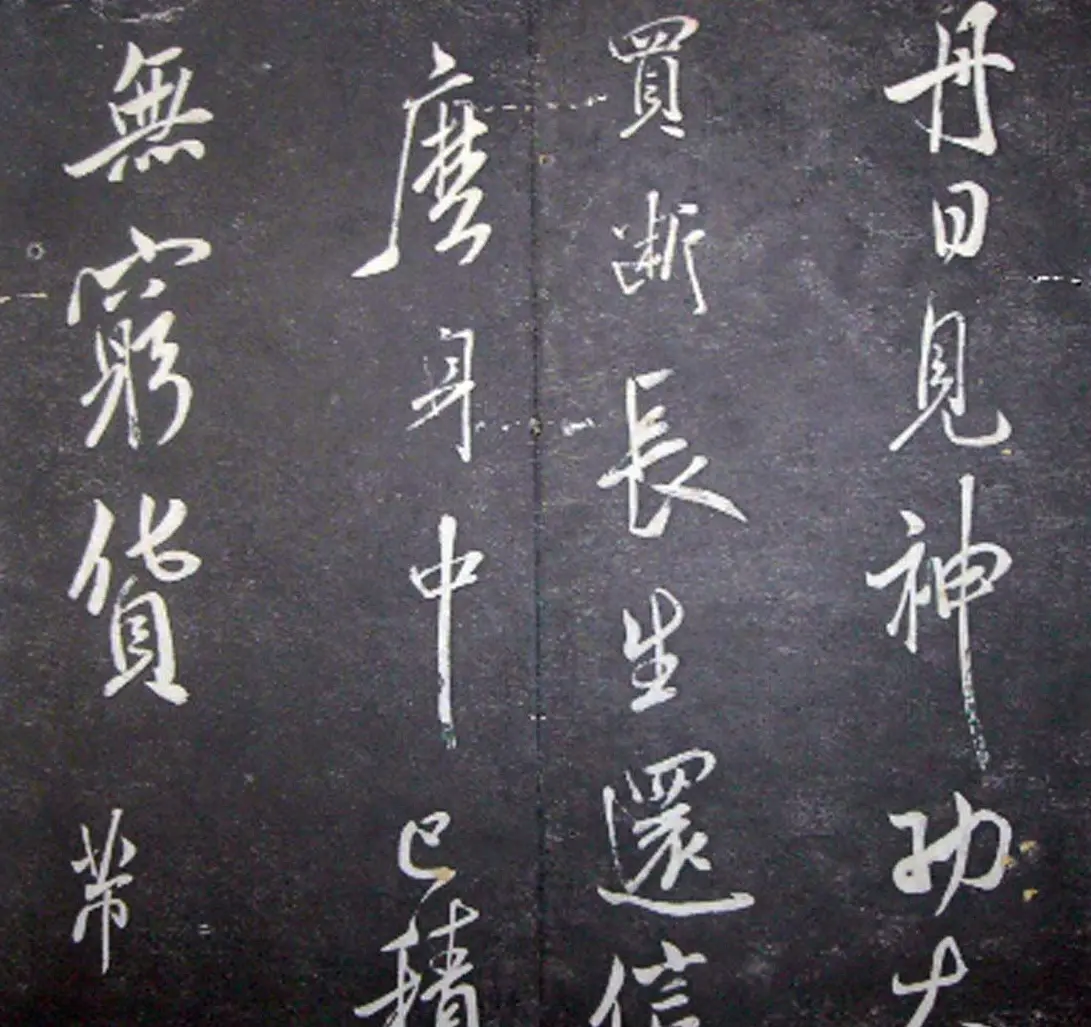 丹日見神功大
買断長生還信
麽身中已積
無窮貨帶